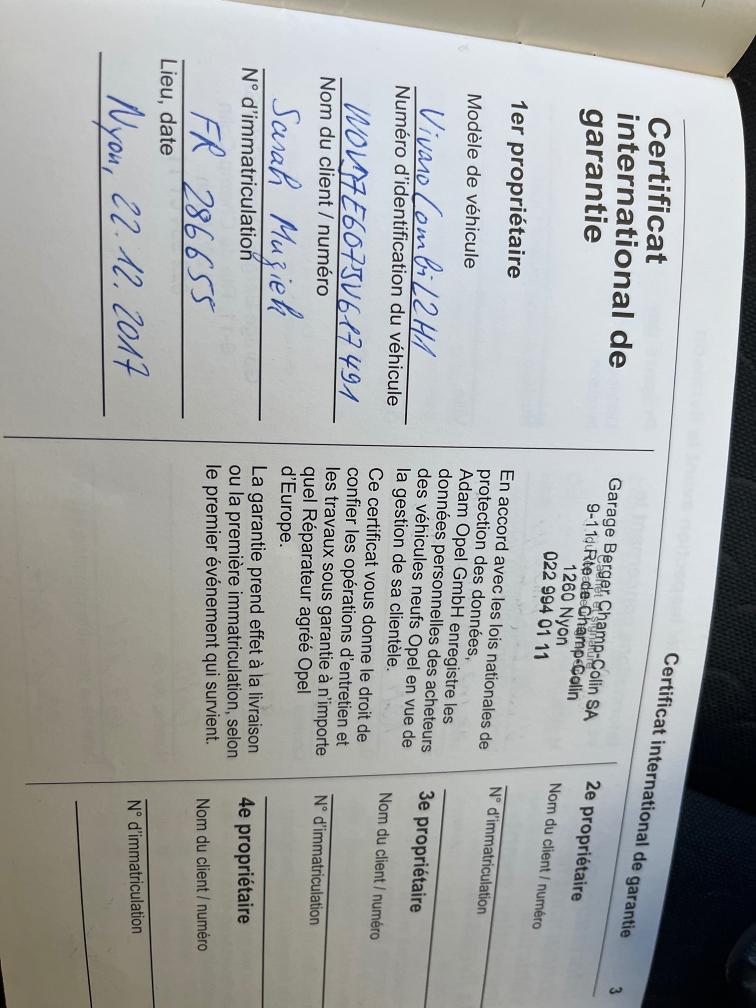 Certificat international de garantie
3
Certificat
international de
garantie
1er propriétaire
Modèle de véhicule
Vivaro Combi L2H1
Numéro d'identification du véhicule
W0VJ7E607JV617491
Nom du client / numéro
Sarah
N° d'immatriculation
FR 286655
Lieu, date
Nyon, 22.12.2017
Garage Berger Champ-Colin SA
9-11, Rte de Champ-Colin
1260 Nyon
022 994 01 11
En accord avec les lois nationales de
protection des données,
Adam Opel GmbH enregistre les
données personnelles des acheteurs
des véhicules neufs Opel en vue de
la gestion de sa clientèle.
Ce certificat vous donne le droit de
confier les opérations d'entretien et
les travaux sous garantie à n'importe
quel Réparateur agréé Opel
d'Europe.
La garantie prend effet à la livraison
ou la première immatriculation, selon
le premier événement qui survient.
2e propriétaire
Nom du client / numéro
N° d'immatriculation
3e propriétaire
Nom du client / numéro
N° d'immatriculation
4e propriétaire
Nom du client / numéro
N° d'immatriculation